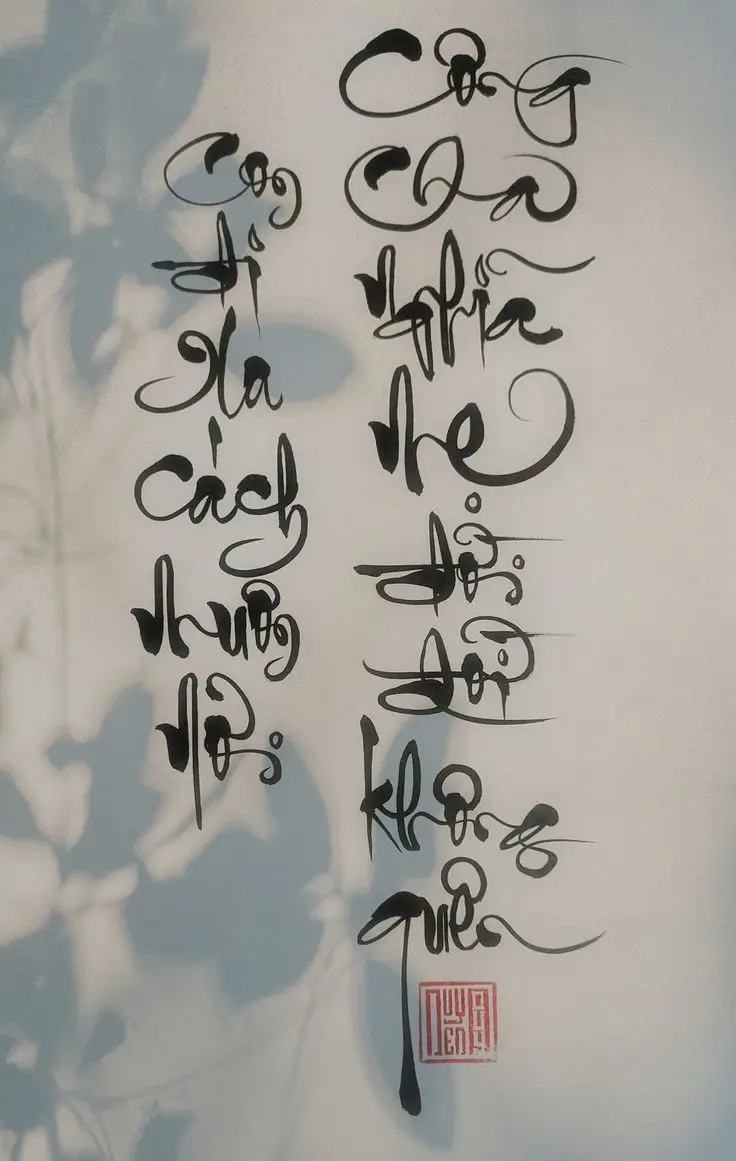 Con đi xa cách muôn nơi
Công Cha nghĩa mẹ đời đời không quên